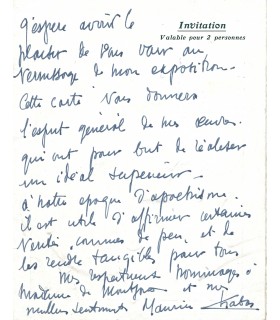 Invitation
Valable pour 2 personnes
J'espère avoir le
plaisir de vous voir au
Vernissage de mon exposition.
Cette carte vous donnera
l'esprit général de mes œuvres
qui ont pour but de réaliser
un idéal supérieur.
à notre époque
il est utile d'affirmer certaines
Vérités connues de peu, et de
les rendre tangibles pour tous
Mes respectueux hommages à
Madame de et mes
meilleurs sentiments Maurice Chabas